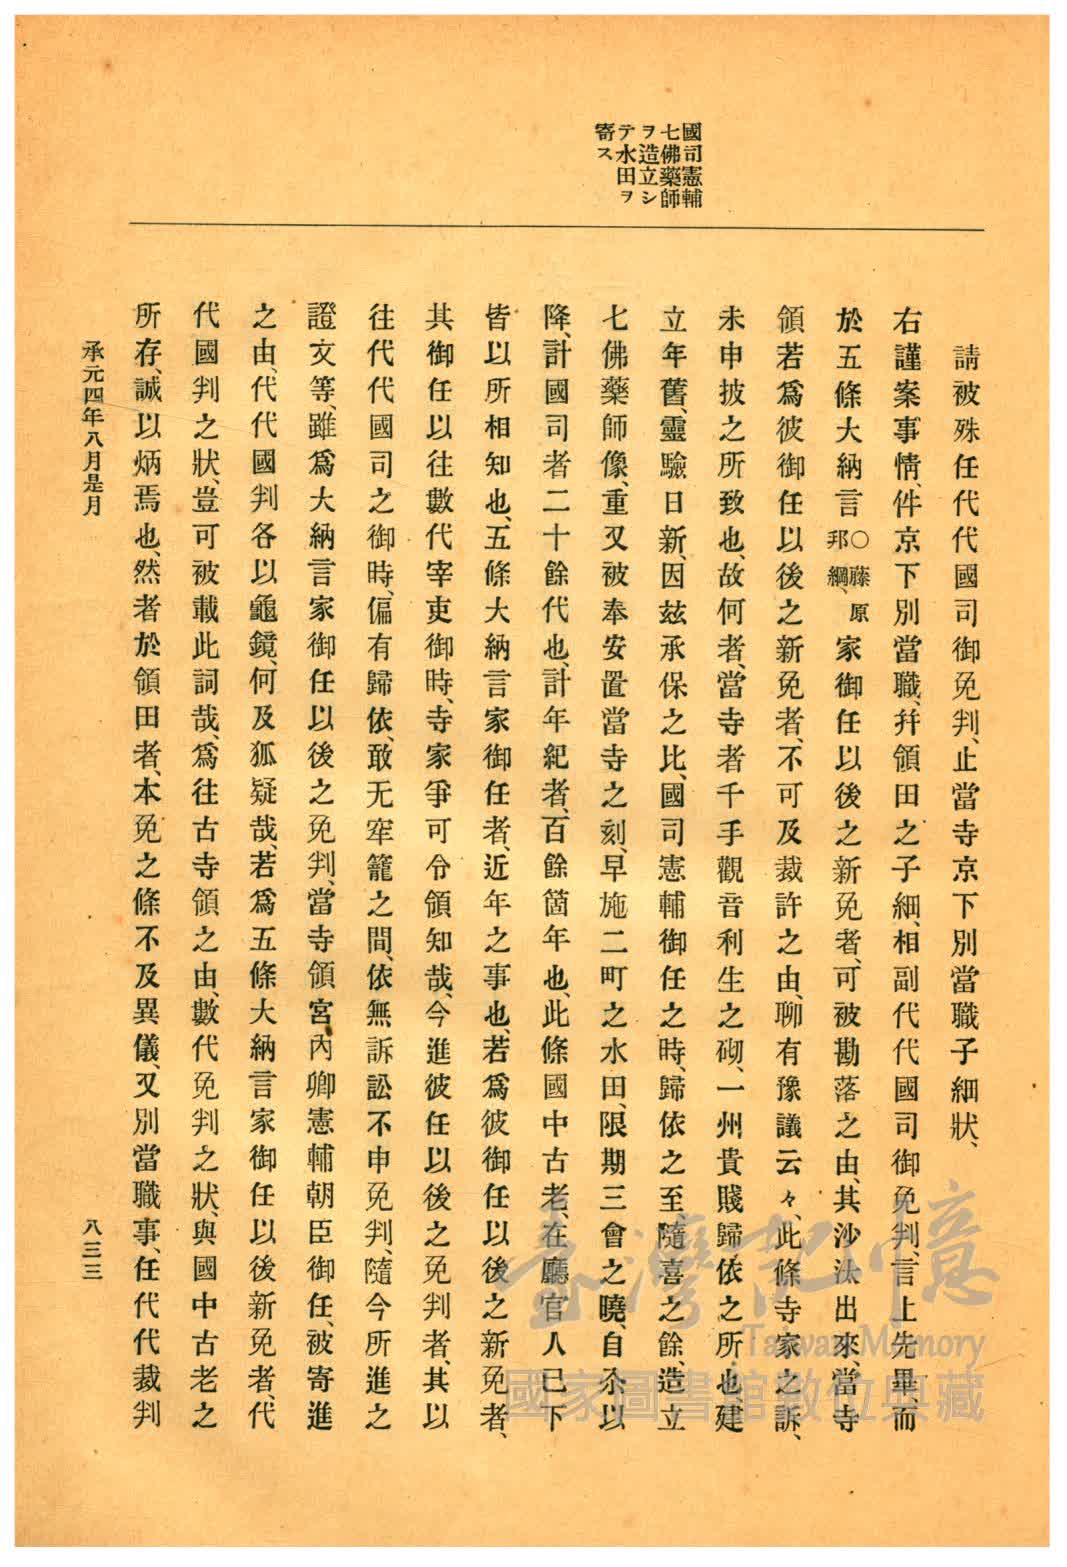 國司憲輔
七佛藥師
ヲ造立シ
テ水田ヲ
寄ス
請被殊任代代國司御免判、止當寺京下別當職子細狀、
右謹案事情、件京下別當職、幷領田之子細、相副代代國司御免判、言上先畢、而
於五條大納言○藤原邦綱、家御任以後之新免者、可被勘落之由、其沙汰出來、當寺
領若爲彼御任以後之新免者、不可及裁許之由、聊有豫議云々、此條寺家之訴、
未申披之所致也、故何者、當寺者千手觀音利生之砌、一州貴賤歸依之所也、建
立年舊、靈驗日新、因玆承保之比、國司憲輔御任之時、歸依之至隨喜之餘、造立
七佛藥師像、重又被奉安置當寺之刻、早施二町之水田、限期三會之曉、自尒以
降、計國司者二十餘代也、計年紀者、百餘箇年也、此條國中古老、在廳官人已下
皆以所相知也、五條大納言家御任者、近年之事也、若爲彼御任以後之新免者、
其御任以往數代宰吏御時、寺家爭可令領知哉、今進彼任以後之免判者、其以
往代代國司之御時、偏有歸依、敢无窂籠之間、依無訴訟不申免判、隨今所進之
證文等、雖爲大納言家御任以後之免判、當寺領宮內卿憲輔朝臣御任、被寄進
之由、代代國判各以龜鏡、何及狐疑哉、若爲五條大納言家御任以後新免者、代
代國判之狀、豈可被載此詞哉、爲往古寺領之由、數代免判之狀、與國中古老之
所存、誠以炳焉也、然者於領田者、本免之條不及異儀、又別當職事、任代代裁判
承元四年八月是月
八三三
臺灣記憶
Taiwan Memory
國家圖書館數位典藏